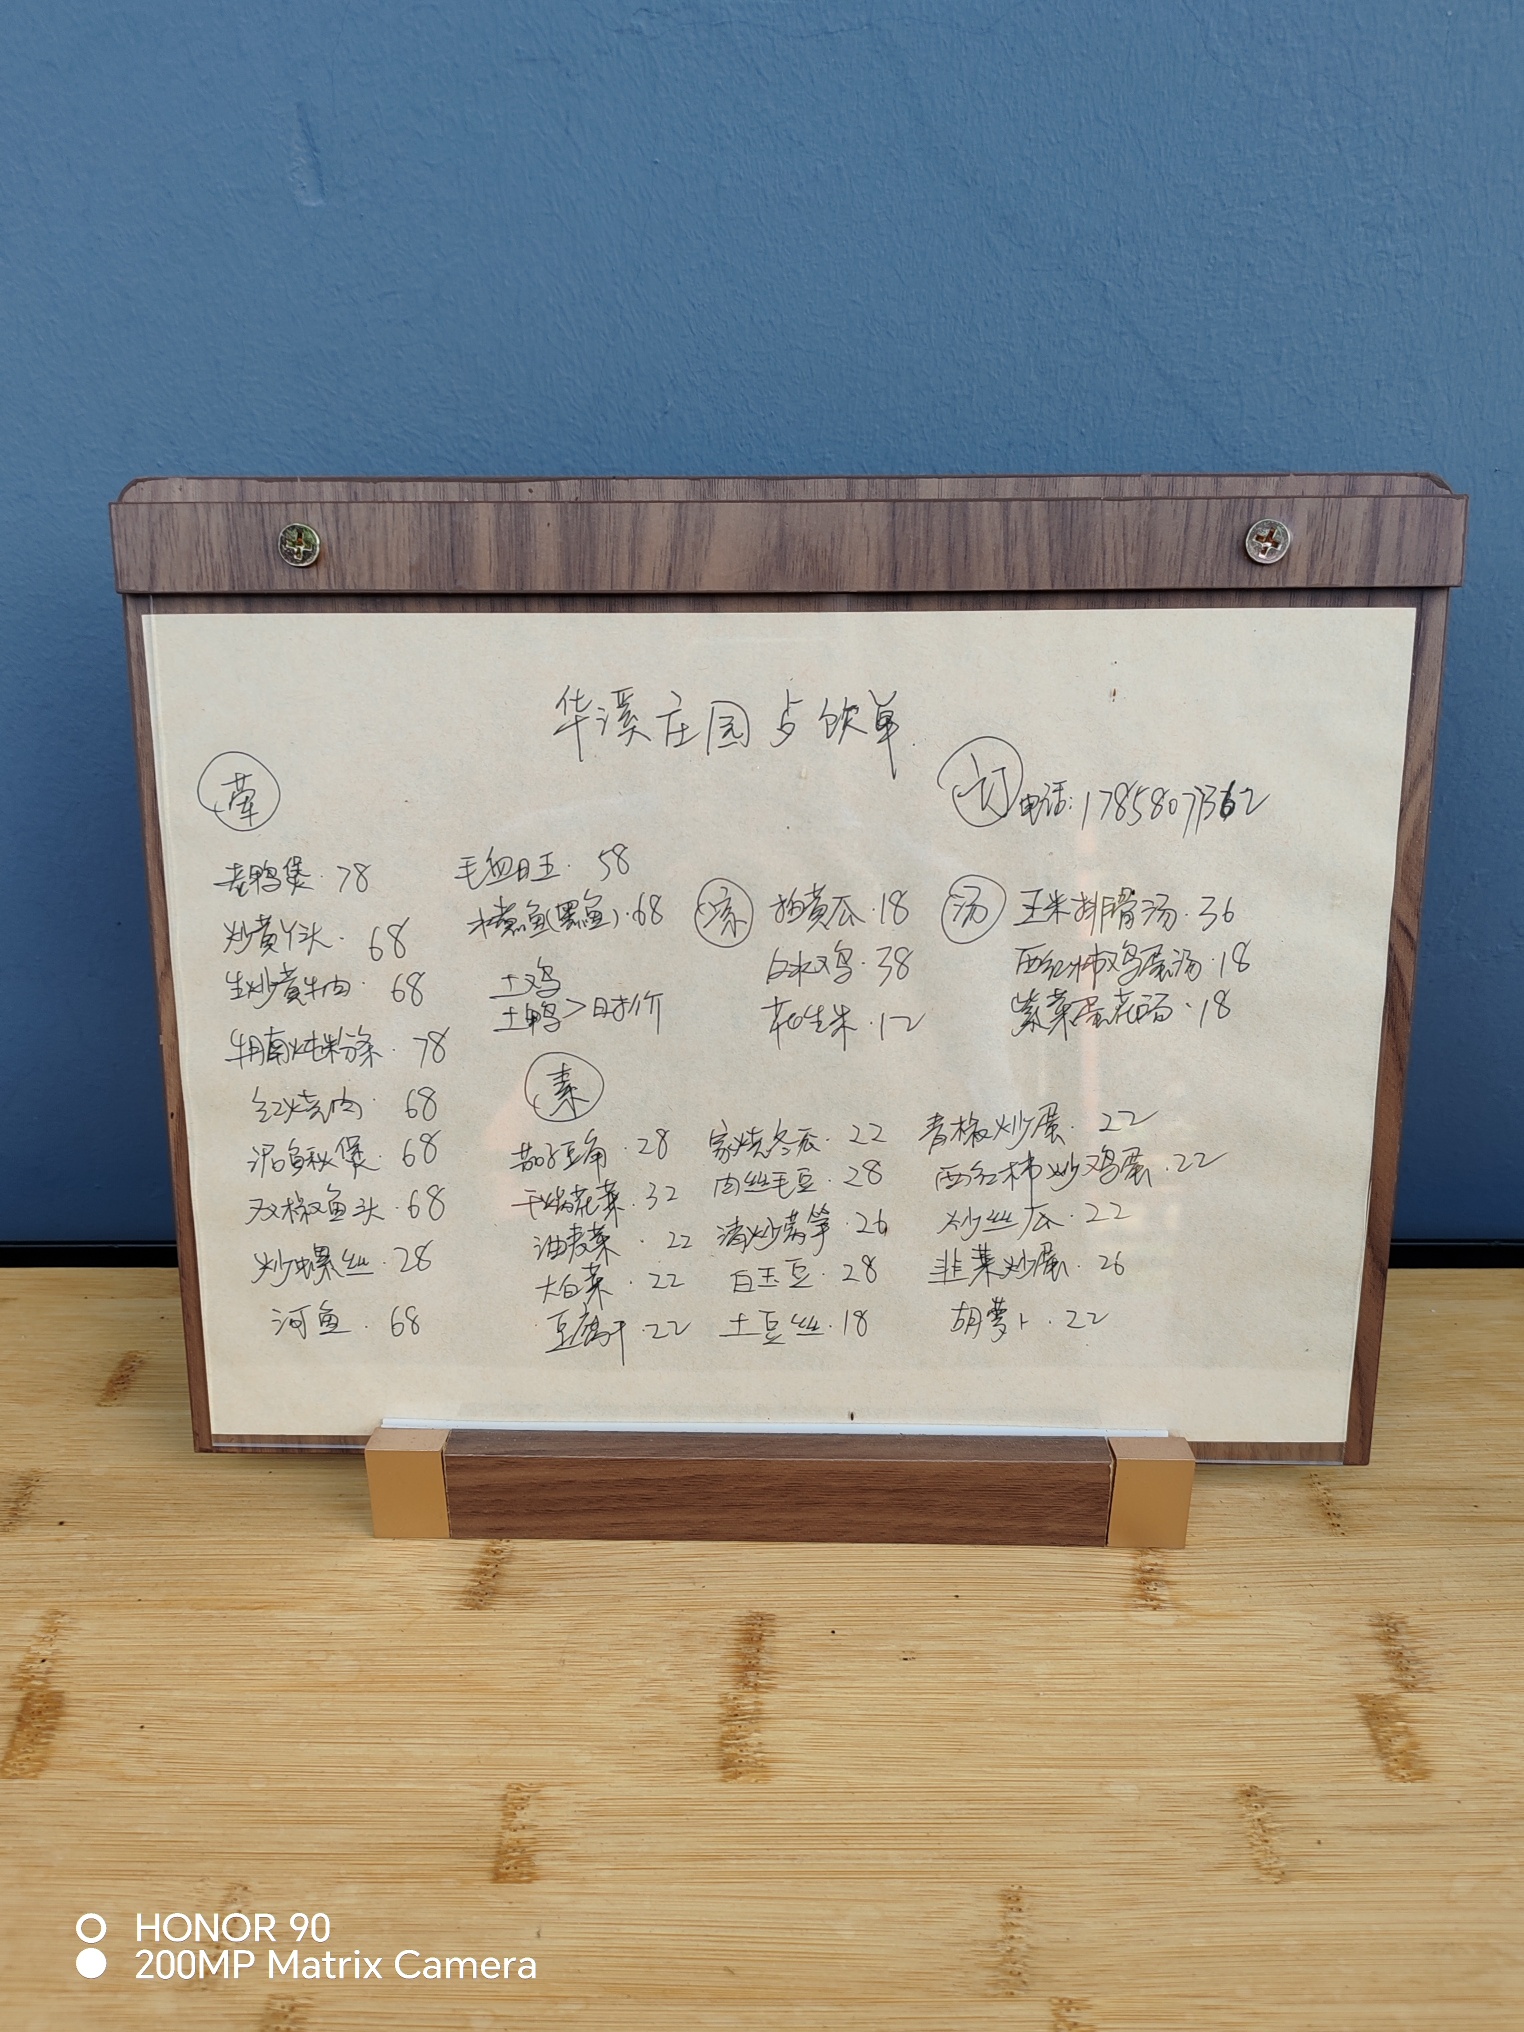 华溪庄园点饮单
荤
订电话:17858071362
老鸭煲·78
炒黄丫头·68
生炒黄牛肉·68
牛腩炖粉条·78
红烧肉·68
泥鳅煲·68
双椒鱼头·68
炒螺丝·28
河鱼·68
毛血旺·58
水煮鱼(黑鱼)·68
土鸡
土鸭>时价
凉
拍黄瓜·18
白水鸡·38
花生米·12
汤
玉米排骨汤·36
西红柿鸡蛋汤·18
紫菜蛋花汤·18
素
茄子豆角·28
干锅花菜·32
油麦菜·22
大白菜·22
豆腐干·22
家烧冬瓜·22
肉丝毛豆·28
清炒莴笋·26
白玉豆·28
土豆丝·18
青椒炒蛋·22
西红柿炒鸡蛋·22
炒丝瓜·22
韭菜炒蛋·26
胡萝卜·22
HONOR 90
200MP Matrix Camera